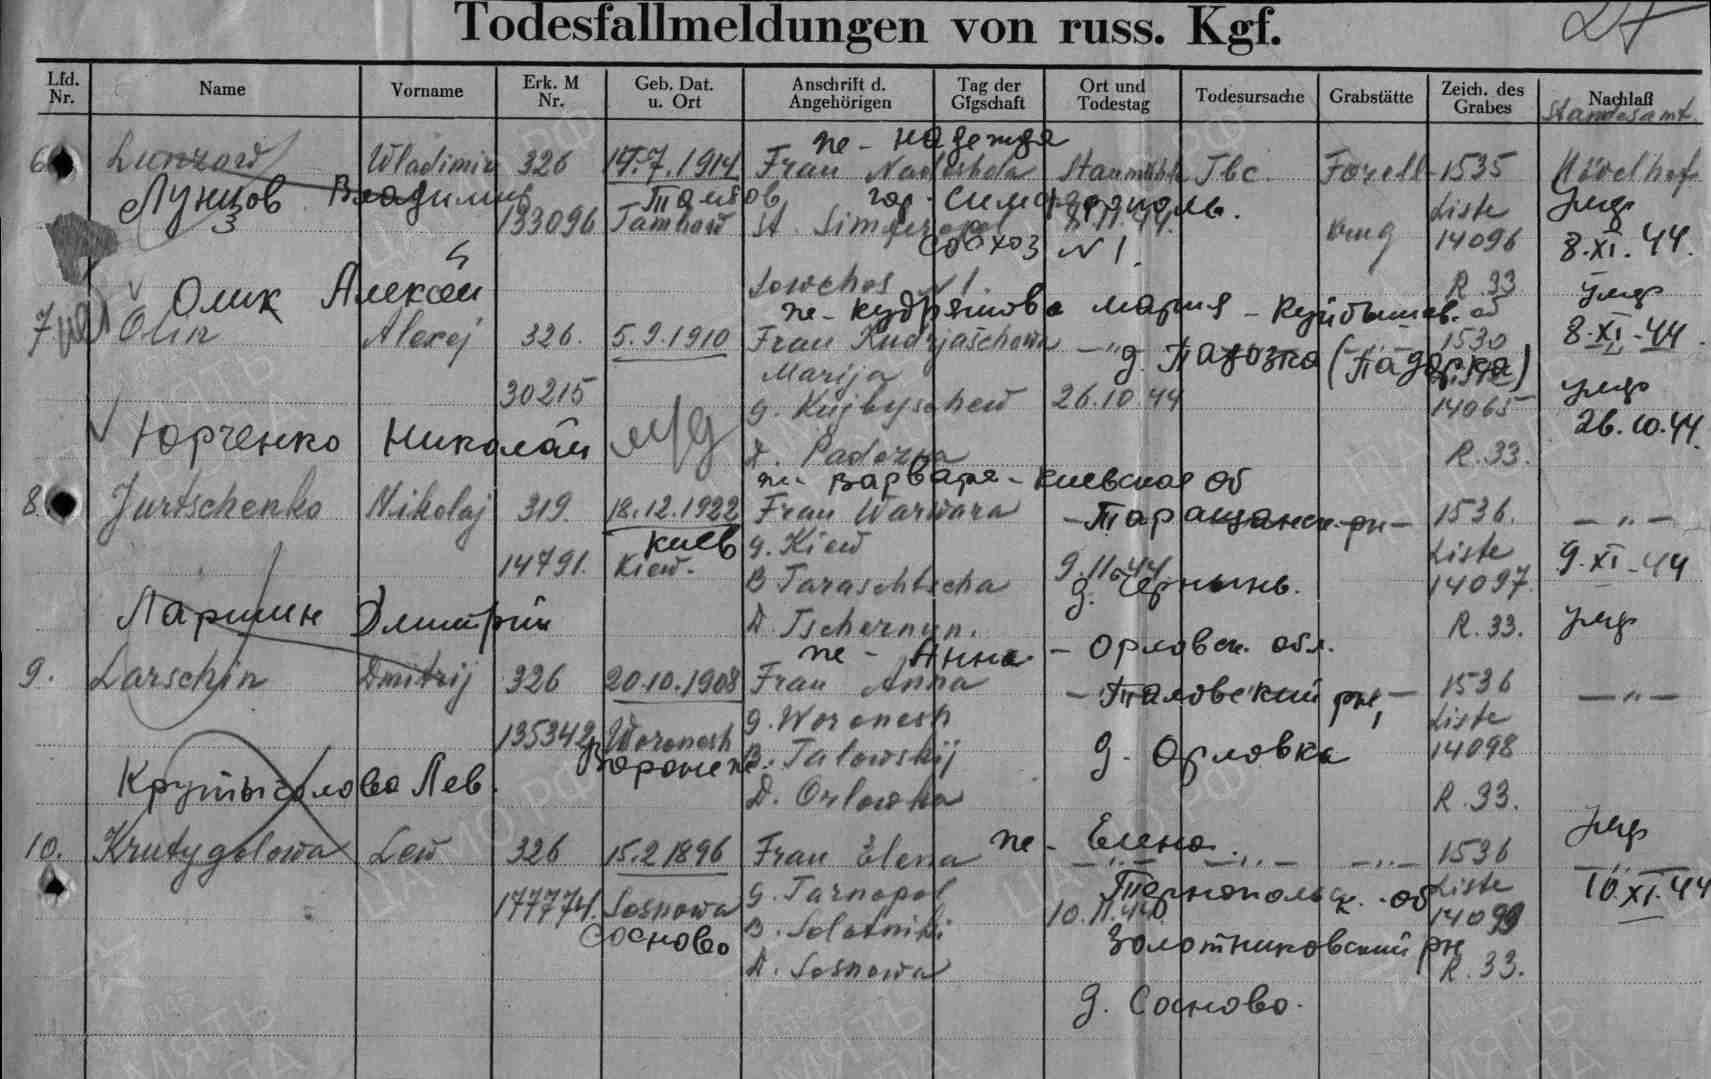 Todesfallmeldungen von russ. Kgf.
27
Lfd. Nr. Name Vorname Erk. M Nr. Geb. Dat. u. Ort Anschrift d. Angehörigen Tag der Gfgschaft Ort und Todestag Todesursache Grabstätte Zeich. des Grabes Nachlaß
Standesamt
не - Надежда
6 Lunzow Wladimir 326 14.7.1914 Frau Nadeshda Tbc. Forell 1535 Hövelhof
Лунцов Владимир Тамбов гор. Симферополь. Liste умр
133096 Tambow St. Simferopol 8.11.44. krug 14096 8.XI.44.
совхоз N 1.
Sowchos N 1. R. 33 умр
Олик Алексей
не - Кудряшова Мария - Куйбышев. об
7. Olin Alexej 326. 5.9.1910 Frau Kudrjaschowa - " - 1530 8.XI-44.
д. Падозка (Падорка)
Marija умр
30215 g. Kujbyschew 26.10.44 14065 26.10.44.
Юрченко Николай
D. Padozka R. 33.
не - Варвара - Киевская об
8. Jurtschenko Nikolaj 319. 18.12.1922 Frau Warwara - Таращанск. рн - 1536. - " -
Киев g. Kiew Liste
14791. Kiew. 9.11.44 9.XI-44
B Taraschtscha д. Чернынь. 14097.
Ларшин Дмитрий D. Tschernyn. R. 33. умр
не - Анна - Орловск. обл.
9. Larschin Dmitrij 326 20.10.1908 Frau Anna - Таловский рн, - 1536 - " -
g. Woronesh Liste
135342 Woronesh B. Talowskij д. Орловка 14098
Воронеж
Крутыголова Лев. D. Orlowka R. 33.
не - Елена. умр
10. Krutygolowa Lew 326 15.2.1896 Frau Elena - " - - " - - " - 1536 - " -
g. Tarnopol Тарнопольск. об Liste 10.XI.44
177774. Sosnowa 10.11.44 14099
Сосново B. Solotniki Золотниковский рн
D. Sosnowa R. 33.
д. Сосново.